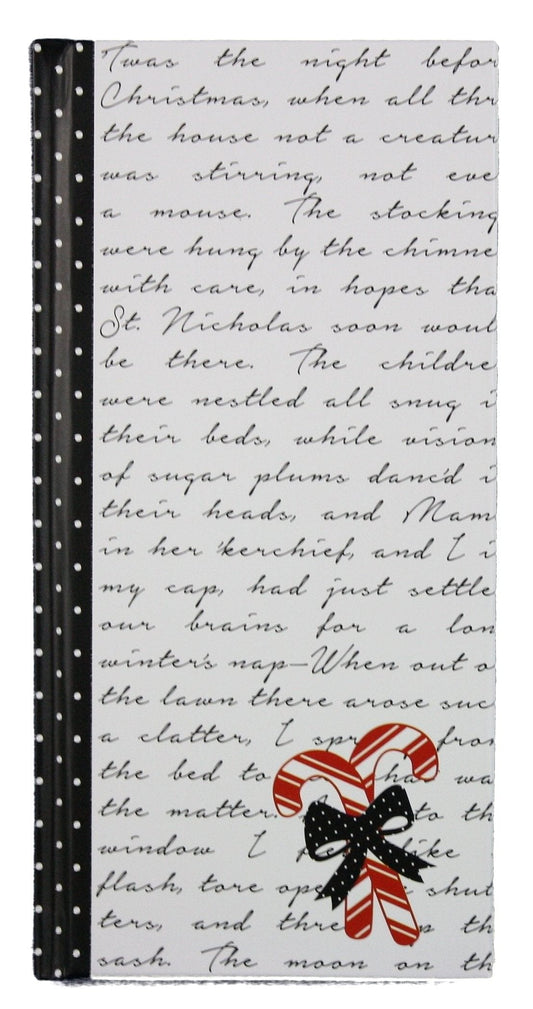 'Twas the night befor
Christmas, when all thr
the house not a creatur
was stirring, not eve
a mouse. The stocking
were hung by the chimne
with care, in hopes tha
St. Nicholas soon woul
be there. The childre
were nestled all snug i
their beds, while vision
of sugar plums danc'd i
their heads, and Mam
in her 'kerchief, and I i
my cap, had just settle
our brains for a lon
winter's nap—When out o
the lawn there arose suc
a clatter, I spr from
the bed to ha wa
the matter. to th
window I fl like
flash, tore ope shut
ters, and thre p th
sash. The moon on th